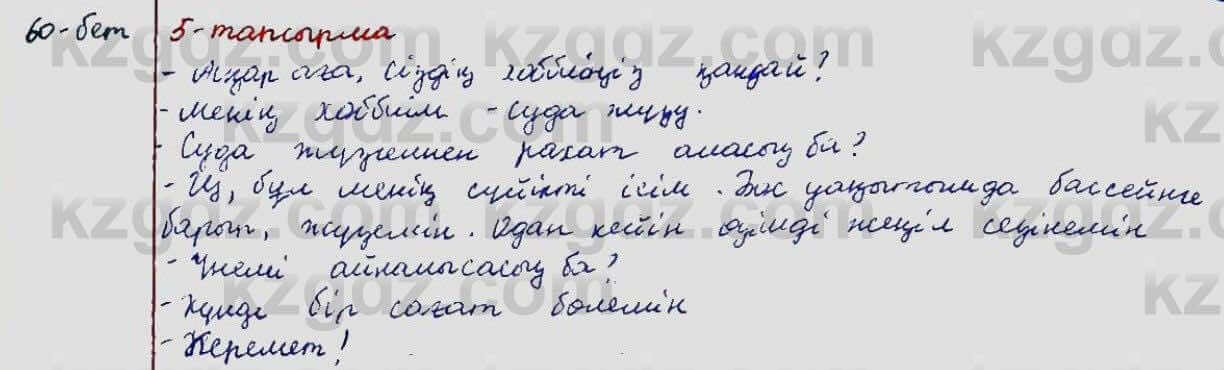 60-бет 5-тапсырма
- Асқар аға, сіздің хоббиіңіз қандай?
- Менің хоббиім - суда жүзу.
- Суда жүзгеннен рахат аласың ба?
- Иә, бұл менің сүйікті ісім. Бос уақытымда бассейнге
барып, жүземін. Одан кейін өзімді жеңіл сезінемін
- Үнемі айналысасың ба?
- Күнде бір сағат бөлемін
- Керемет!